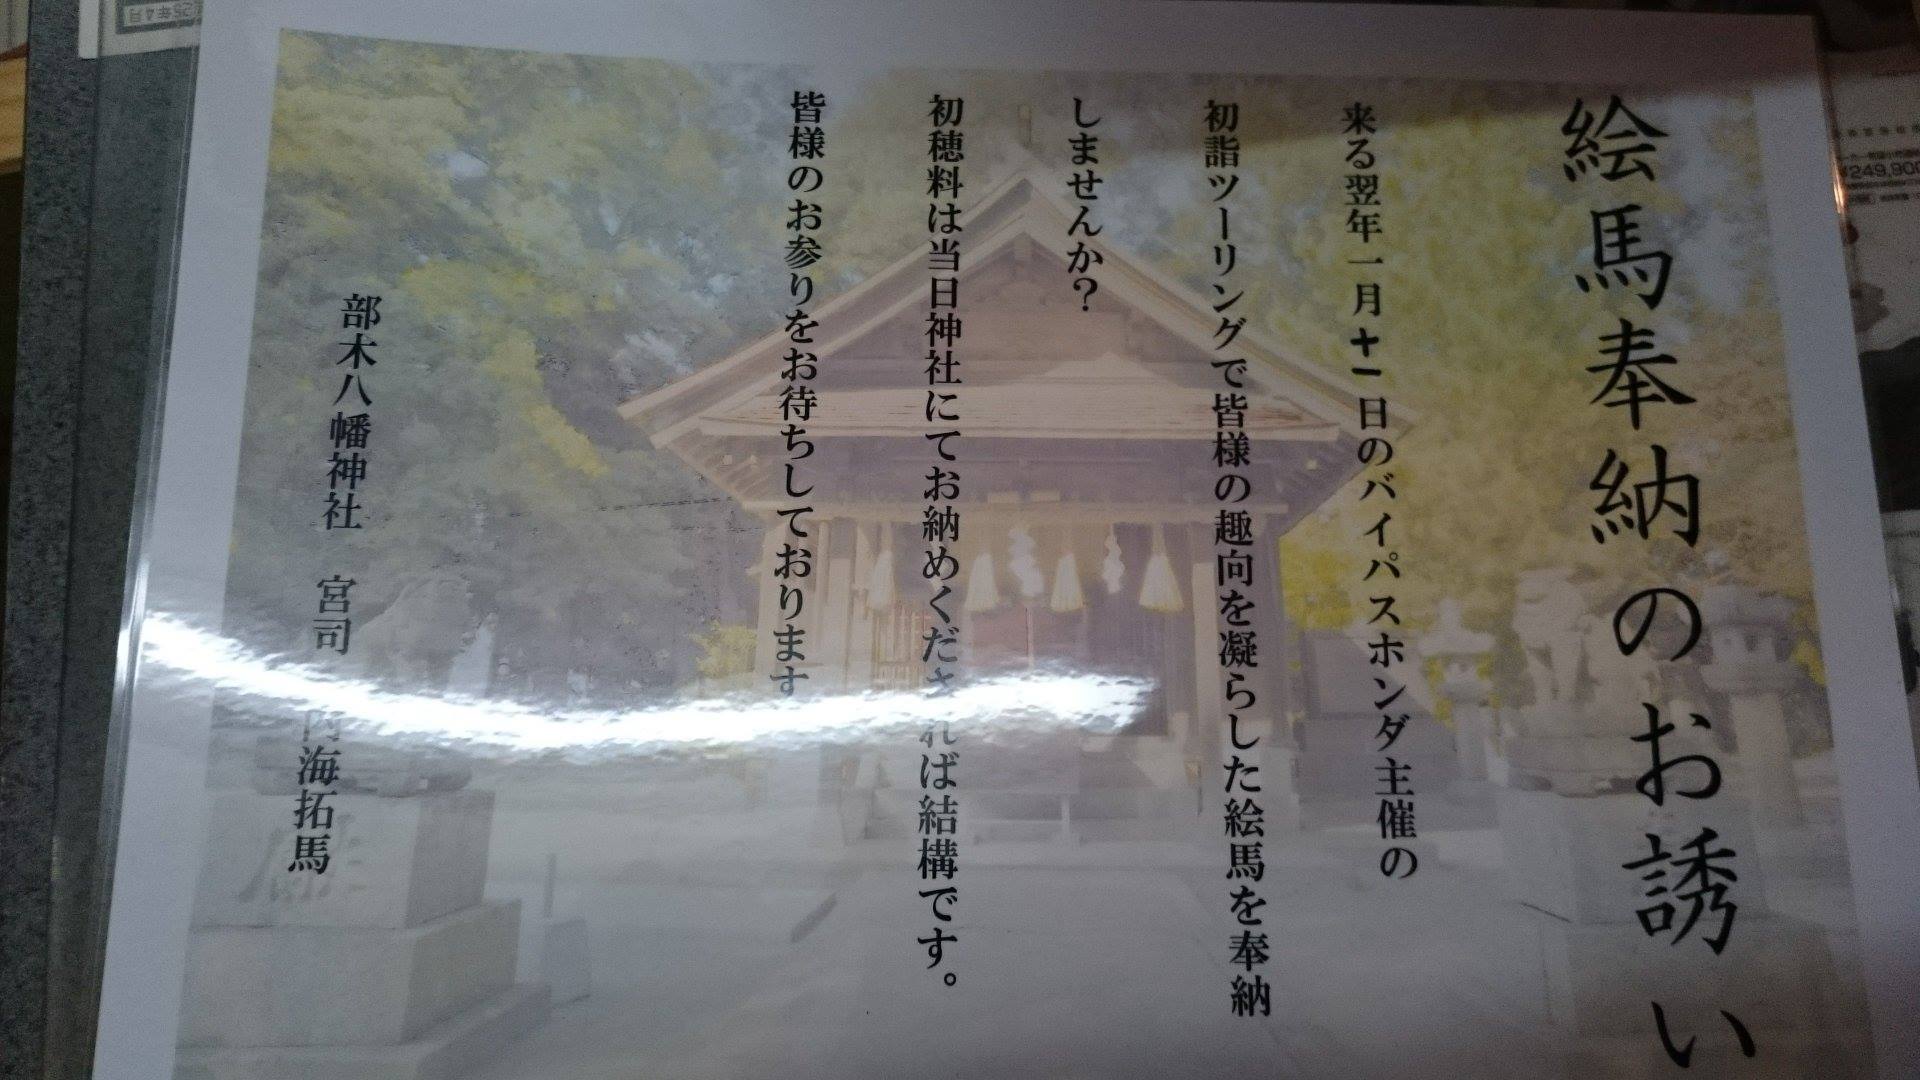 絵馬奉納のお誘い
来る翌年一月十一日のバイパスホンダ主催の
初詣ツーリングで皆様の趣向を凝らした絵馬を奉納
しませんか?
初穂料は当日神社にてお納めくだされば結構です。
皆様のお参りをお待ちしております
部木八幡神社 宮司 内海拓馬
25年4月
¥249,900